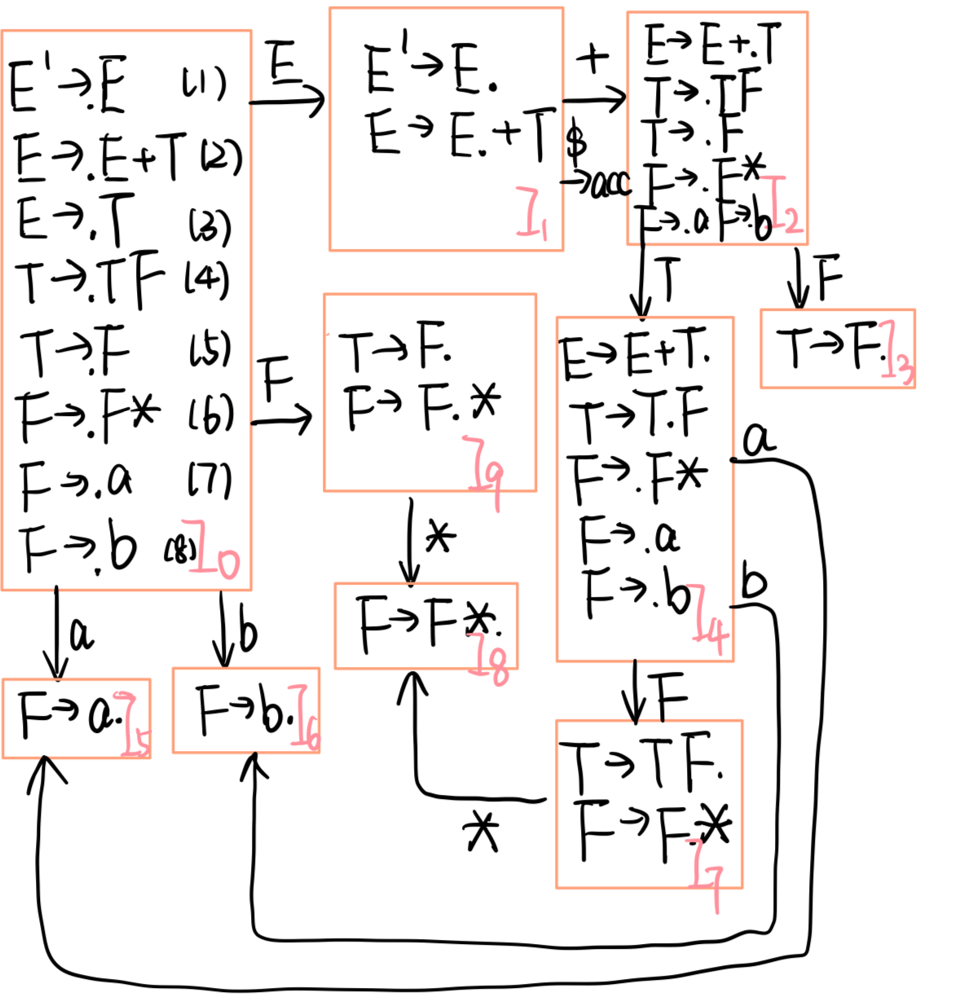 E'→.E (1)
E→.E+T (2)
E→.T (3)
T→.TF (4)
T→.F (5)
F→.F* (6)
F→.a (7)
F→.b (8)
I0
E
E'→E.
E→E.+T
I1
+
$
→acc
E→E+.T
T→.TF
T→.F
F→.F*
F→.a F→.b
I2
T
F
T→F.
I3
F
T→F.
F→F.*
I9
*
F→F*.
I8
E→E+T.
T→T.F
F→.F*
F→.a
F→.b
I4
a
b
a
b
F→a.
I5
F→b.
I6
F
T→TF.
F→F.*
I7
*